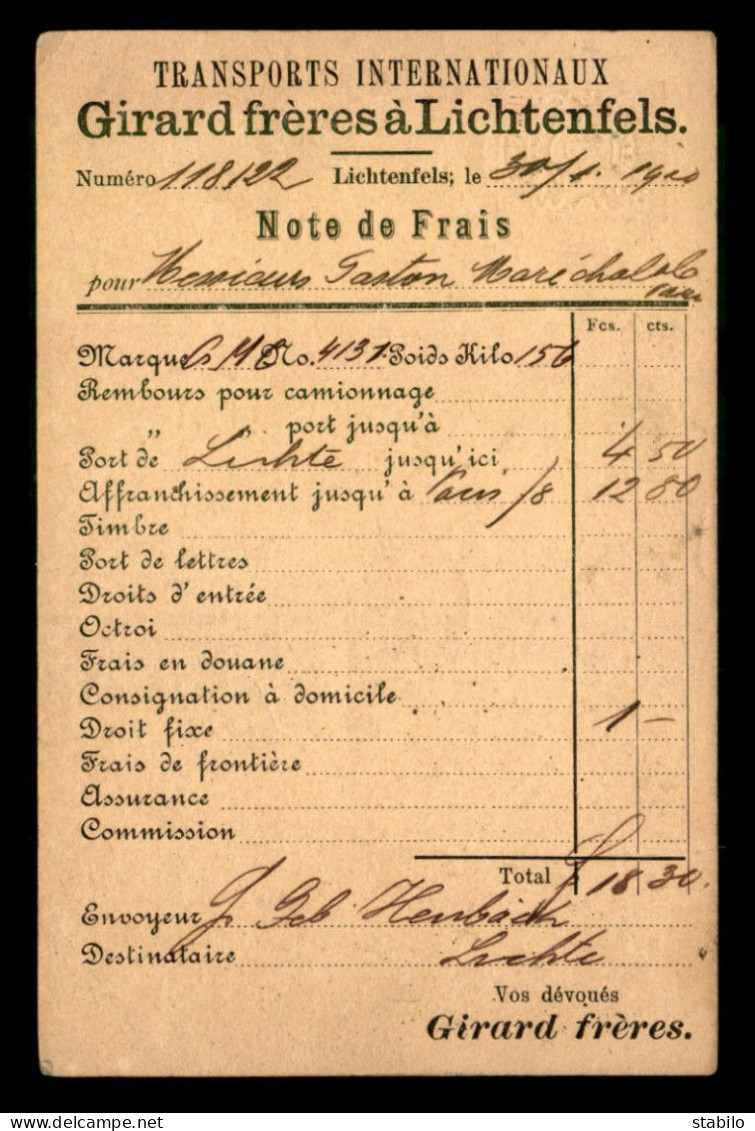 TRANSPORTS INTERNATIONAUX
Girard frères à Lichtenfels.
Numéro 118122 Lichtenfels; le 30/1. 1900
Note de Frais
pour Messieurs Gaston Maréchal & Co
Paris
Fcs. cts.
Marque No. 4131 Poids Kilo 156
Rembours pour camionnage
" port jusqu'à
Port de Lichte jusqu'ici 4 50
Affranchissement jusqu'à Paris 12 80
Timbre
Port de lettres
Droits d'entrée
Octroi
Frais en douane
Consignation à domicile
Droit fixe 1 —
Frais de frontière
Assurance
Commission
Total 18 30.
Envoyeur Geb Heubach
Destinataire Lichte
Vos dévoués
Girard frères.
stabilo